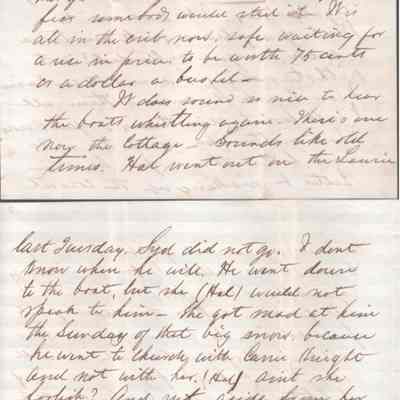 fear somebody would steal it. It is
all in the crib now, safe waiting for
a rise in price to be worth 75 cents
or a dollar a bushel—
It does sound so nice to hear
the boats whistling again. There's one
now the Cottage— Sounds like old
times. Hal went out on the Laurie
last Tuesday. Syd did not go. I dont
know when he will. He went down
to the boat, but she (Hal) would not
speak to him— She got mad at him
the Sunday of that big snow because
he went to Church with Carrie Wright
and not with her. (Hal) aint she
foolish? And yet aside from her